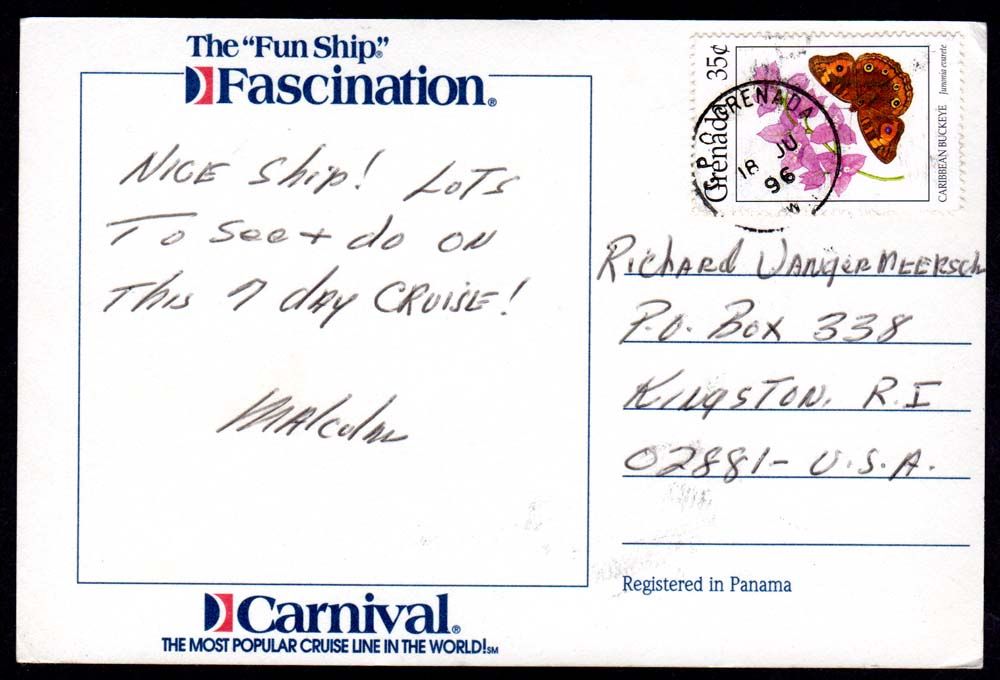 The "Fun Ship®"
Fascination®
NICE Ship! LOTS
To See + do ON
This 7 day CRUISE!
Malcolm
Carnival®
THE MOST POPULAR CRUISE LINE IN THE WORLD!SM
35¢
Grenada
CARIBBEAN BUCKEYE
GRENADA
18 JU
96
W
Richard Vangermeersch
P.O. Box 338
Kingston, R.I
02881- U.S.A.
Registered in Panama